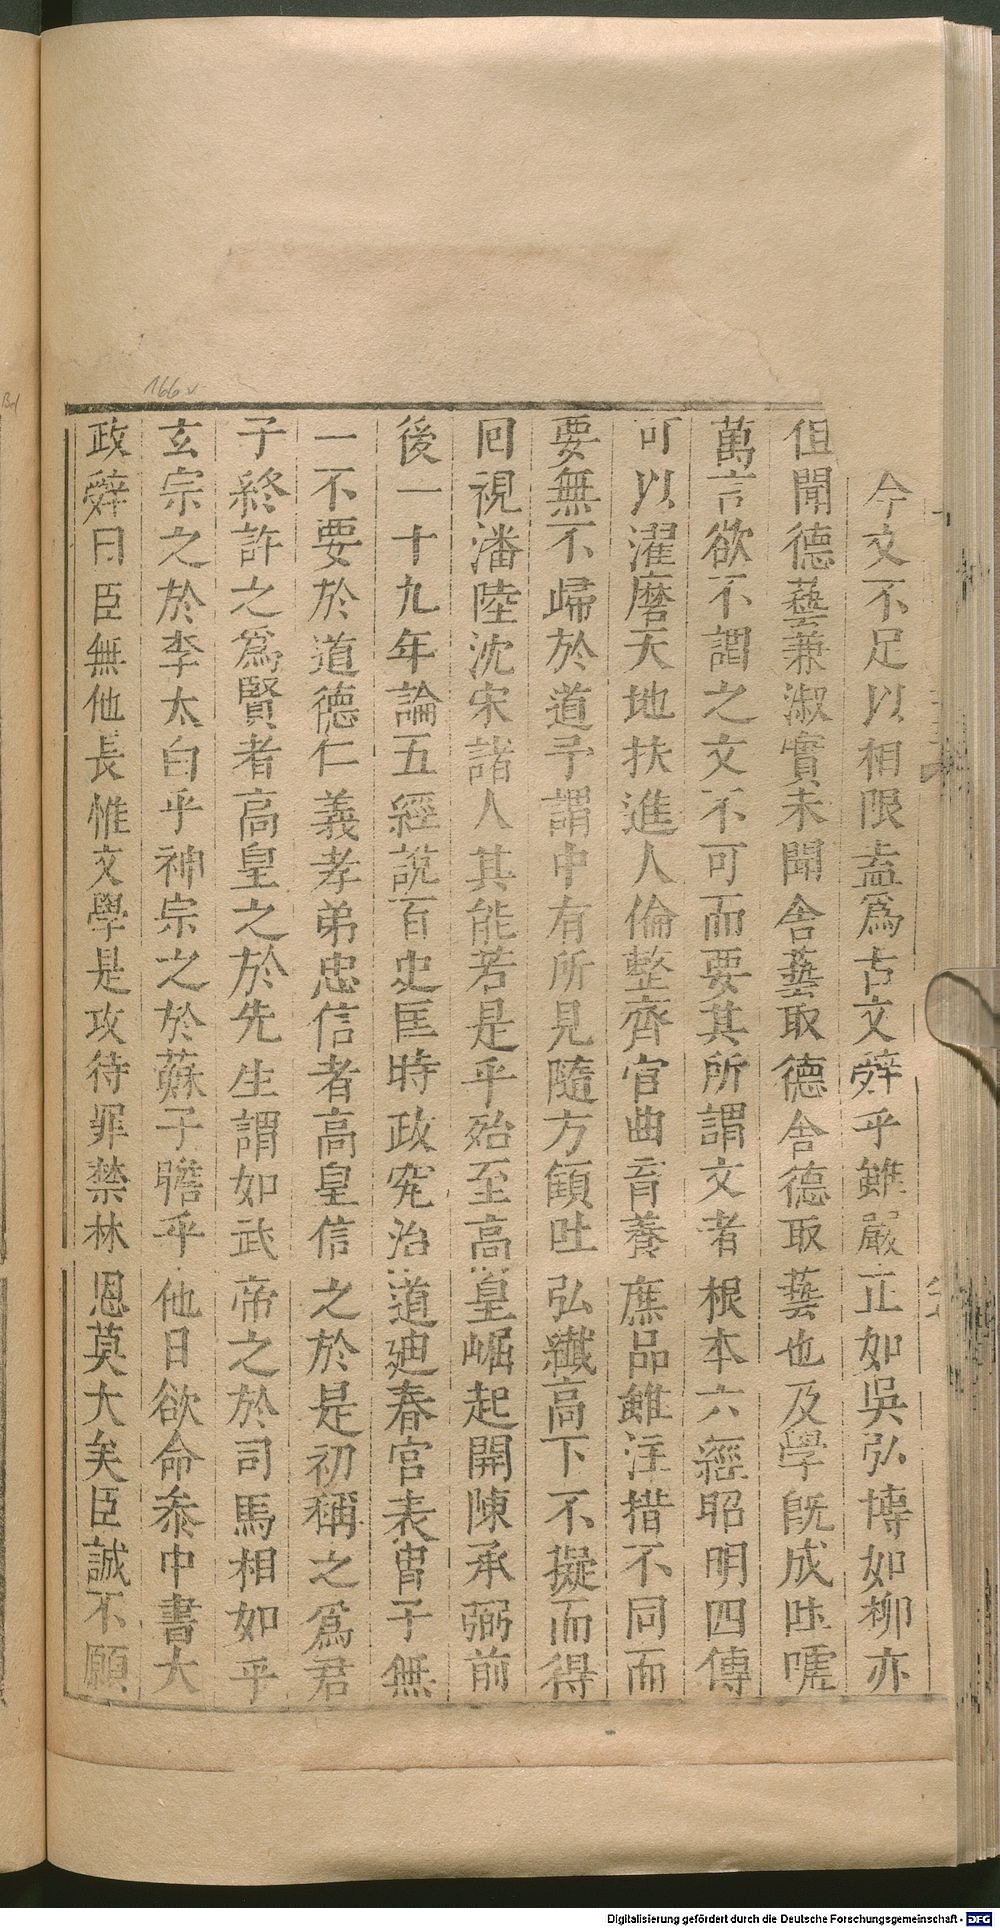 今文不足以相限盍爲古文辤乎雖嚴正如吳弘博如柳亦
但聞德藝兼淑實未聞舍藝取德舍德取藝也及學旣成呿嚏
萬言欲不謂之文不可而要其所謂文者根本六經昭明四傳
可以濯磨天地扶進人倫整齊官曲育養庶品雖注措不同而
要無不歸於道予謂中有所見隨方傾吐弘纖高下不擬而得
囘視潘陸沈宋諸人其能若是乎殆至高皇崛起開陳承弼前
後一十九年論五經說百史匡時政究治道廸春官表曺子無
一不要於道德仁義孝弟忠信者高皇信之於是初稱之爲君
子終許之爲賢者高皇之於先生謂如武帝之於司馬相如乎
玄宗之於李太白乎神宗之於蘇子瞻乎他日欲命叅中書大
政辤曰臣無他長惟文學是攻待罪禁林恩莫大矣臣誠不願
166v
Digitalisierung gefördert durch die Deutsche Forschungsgemeinschaft - DFG